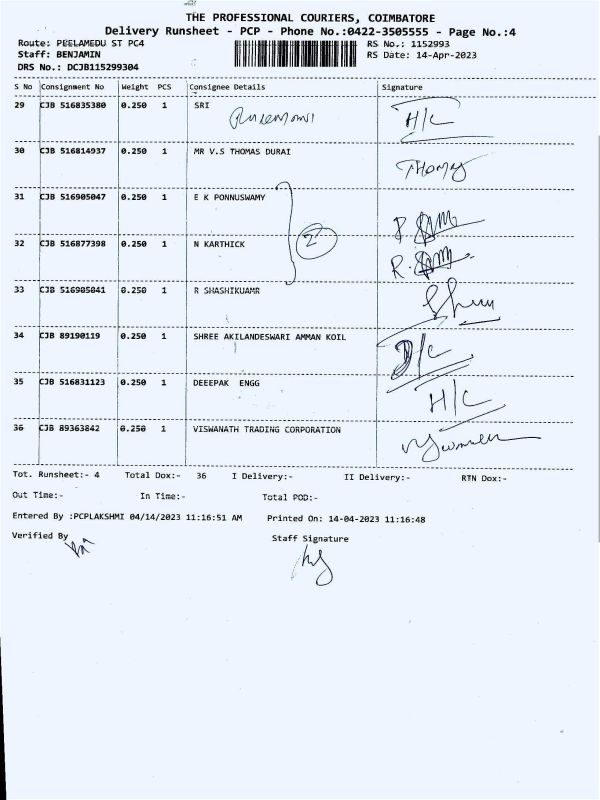 THE PROFESSIONAL COURIERS, COIMBATORE
Delivery Runsheet - PCP - Phone No.:0422-3505555 - Page No.:4
Route: PEELAMEDU ST PC4 RS No.: 1152993
Staff: BENJAMIN RS Date: 14-Apr-2023
DRS No.: DCJB115299304
S No Consignment No Weight PCS Consignee Details Signature
29 CJB 516835380 0.250 1 SRI H/C
30 CJB 516814937 0.250 1 MR V.S THOMAS DURAI Thomas
31 CJB 516905047 0.250 1 E K PONNUSWAMY
2
32 CJB 516877398 0.250 1 N KARTHICK
33 CJB 516905041 0.250 1 R SHASHIKUAMR
34 CJB 89190119 0.250 1 SHREE AKILANDESWARI AMMAN KOIL D/C
35 CJB 516831123 0.250 1 DEEEPAK ENGG H/C
36 CJB 89363842 0.250 1 VISWANATH TRADING CORPORATION
Tot. Runsheet:- 4 Total Dox:- 36 I Delivery:- II Delivery:- RTN Dox:-
Out Time:- In Time:- Total POD:-
Entered By :PCPLAKSHMI 04/14/2023 11:16:51 AM Printed On: 14-04-2023 11:16:48
Verified By Staff Signature